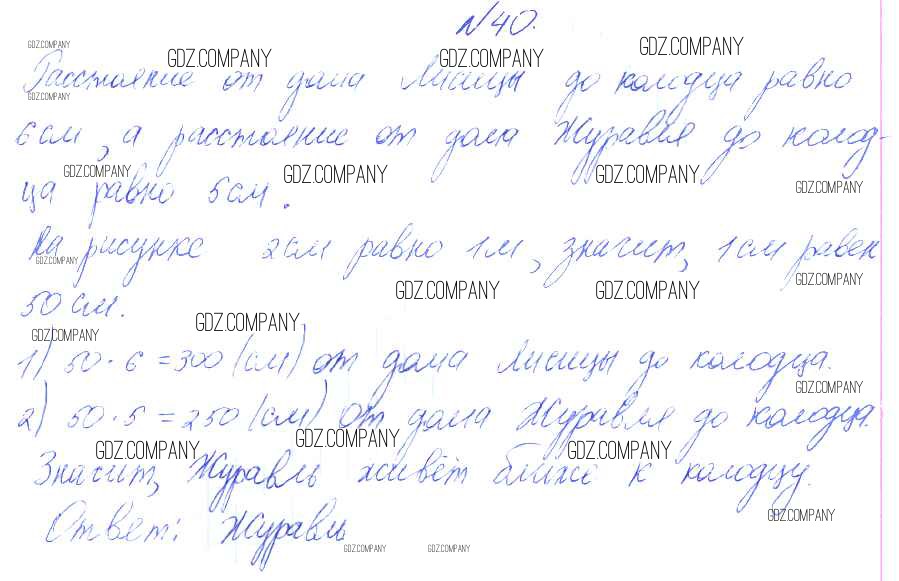 №40.
GDZ.COMPANY GDZ.COMPANY GDZ.COMPANY GDZ.COMPANY
Расстояние от дома Лисицы до колодца равно
GDZ.COMPANY
6 см, а расстояние от дома Журавля до колод-
GDZ.COMPANY GDZ.COMPANY GDZ.COMPANY GDZ.COMPANY
ца равно 5 см.
На рисунке 2 см равно 1 м, значит, 1 см равен
GDZ.COMPANY GDZ.COMPANY GDZ.COMPANY GDZ.COMPANY
50 см.
GDZ.COMPANY GDZ.COMPANY
1) 50 · 6 = 300 (см) от дома Лисицы до колодца.
GDZ.COMPANY
2) 50 · 5 = 250 (см) от дома Журавля до колодца.
GDZ.COMPANY GDZ.COMPANY GDZ.COMPANY
Значит, Журавль живёт ближе к колодцу.
GDZ.COMPANY
Ответ: Журавль
GDZ.COMPANY GDZ.COMPANY